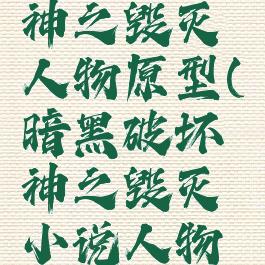 神之毁灭
人物原型(
暗黑破坏
神之毁灭
小说人物